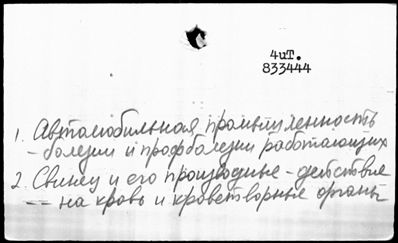 4иТ.
833444
1. Автомобильная промышленность
- болезни и профболезни работающих
2. Свинец и его производные - действие
-- на кровь и кроветворные органы